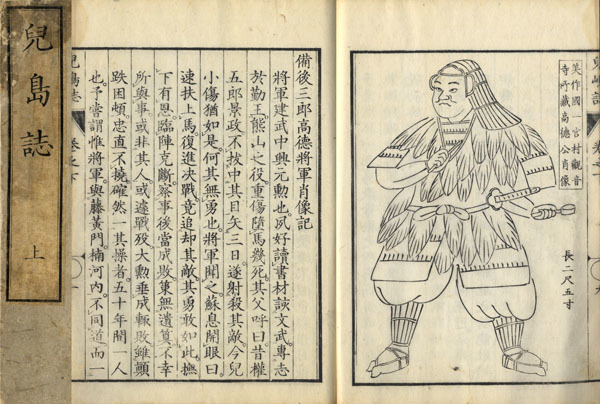 美作國一宮村觀音
寺所藏高德公肖像
長二尺五寸
備後三郎高德將軍肖像記
將軍建武中興元勲也。夙好讀書材該文武。專志
於勤王。熊山之役重傷墮馬幾死。其父呼曰。昔權
五郎景政不拔中其目矢三日。遂射殺其敵。今兒
小傷猶如是。何其無勇也。將軍聞之。蘇息開眼曰。
速扶上馬。復進決戰。竟追却其敵。其勇敢如此。撫
下有恩。臨陣克斷。察事後當成敗。策無遺筭。不幸
所與事。或非其人。或遽戰歿。大勲垂成。輒敗。雖顚
跌困頓。忠直不撓。確然一其操者。五十年間一人
也。予嘗謂惟將軍與藤黃門。楠河内。不同道而一
兒島誌 卷之下
兒島誌 上